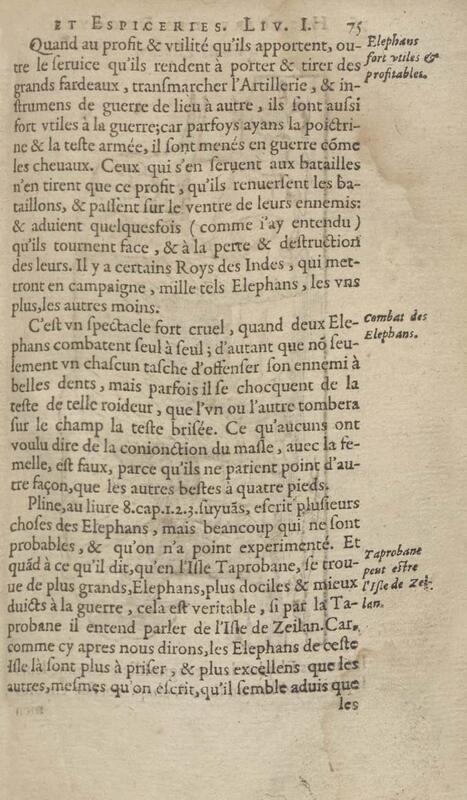 ET ESPICERIES. LIV. I. 75
Quand au profit & vtilité qu'ils apportent, ou-
tre le seruice qu'ils rendent à porter & tirer des
grands fardeaux, transmarcher l'Artillerie, & in-
strumens de guerre de lieu à autre, ils sont aussi
fort vtiles à la guerre;car parfoys ayans la poictri-
ne & la teste armée, il sont menés en guerre cõme
les cheuaux. Ceux qui s'en seruent aux batailles
n'en tirent que ce profit, qu'ils renuersent les ba-
taillons, & passent sur le ventre de leurs ennemis:
& aduient quelquesfois (comme i'ay entendu)
qu'ils tournent face, & à la perte & destruction
des leurs. Il y a certains Roys des Indes, qui met-
tront en campaigne, mille tels Elephans, les vns
plus,les autres moins.
C'est vn spectacle fort cruel, quand deux Ele-
phans combatent seul à seul; d'autant que nõ seu-
lement vn chascun tasche d'offenser son ennemi à
belles dents, mais parfois il se chocquent de la
teste de telle roideur, que l'vn ou l'autre tombera
sur le champ la teste brisée. Ce qu'aucuns ont
voulu dire de la conionction du masle, auec la fe-
melle, est faux, parce qu'ils ne parient point d'au-
tre façon,que les autres bestes à quatre pieds.
Pline,au liure 8.cap.1.2.3.suyuãs, escrit plusieurs
choses des Elephans, mais beaucoup qui ne sont
probables, & qu'on n'a point experimenté. Et
quãd à ce qu'il dit,qu'en l'Isle Taprobane, se trou-
ue de plus grands,Elephans,plus dociles & mieux
duicts à la guerre, cela est veritable, si par la Ta-
probane il entend parler de l'Isle de Zeilan. Car,
comme cy apres nous dirons,les Elephans de ceste
Isle là sont plus à priser, & plus excellens que les
autres,mesmes qu'on escrit,qu'il semble aduis que
les
Elephans
fort vtiles &
profitables.
Combat des
Elephans.
Taprobane
peut estre
l'Isle de Zei-
lan.